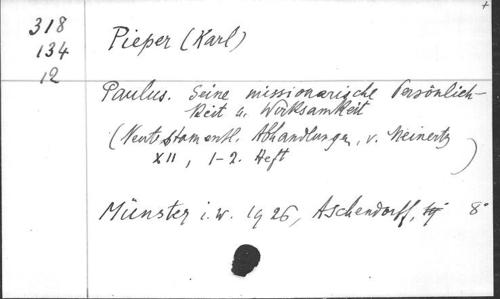 318
134
12
Pieper (Karl)
Paulus. Seine missionarische Persönlich-
keit u. Wirksamkeit
(Neutestamentl. Abhandlungen, v. Meinertz
XII, 1-2. Heft)
Münster i. W. 1926, Aschendorff, 8°